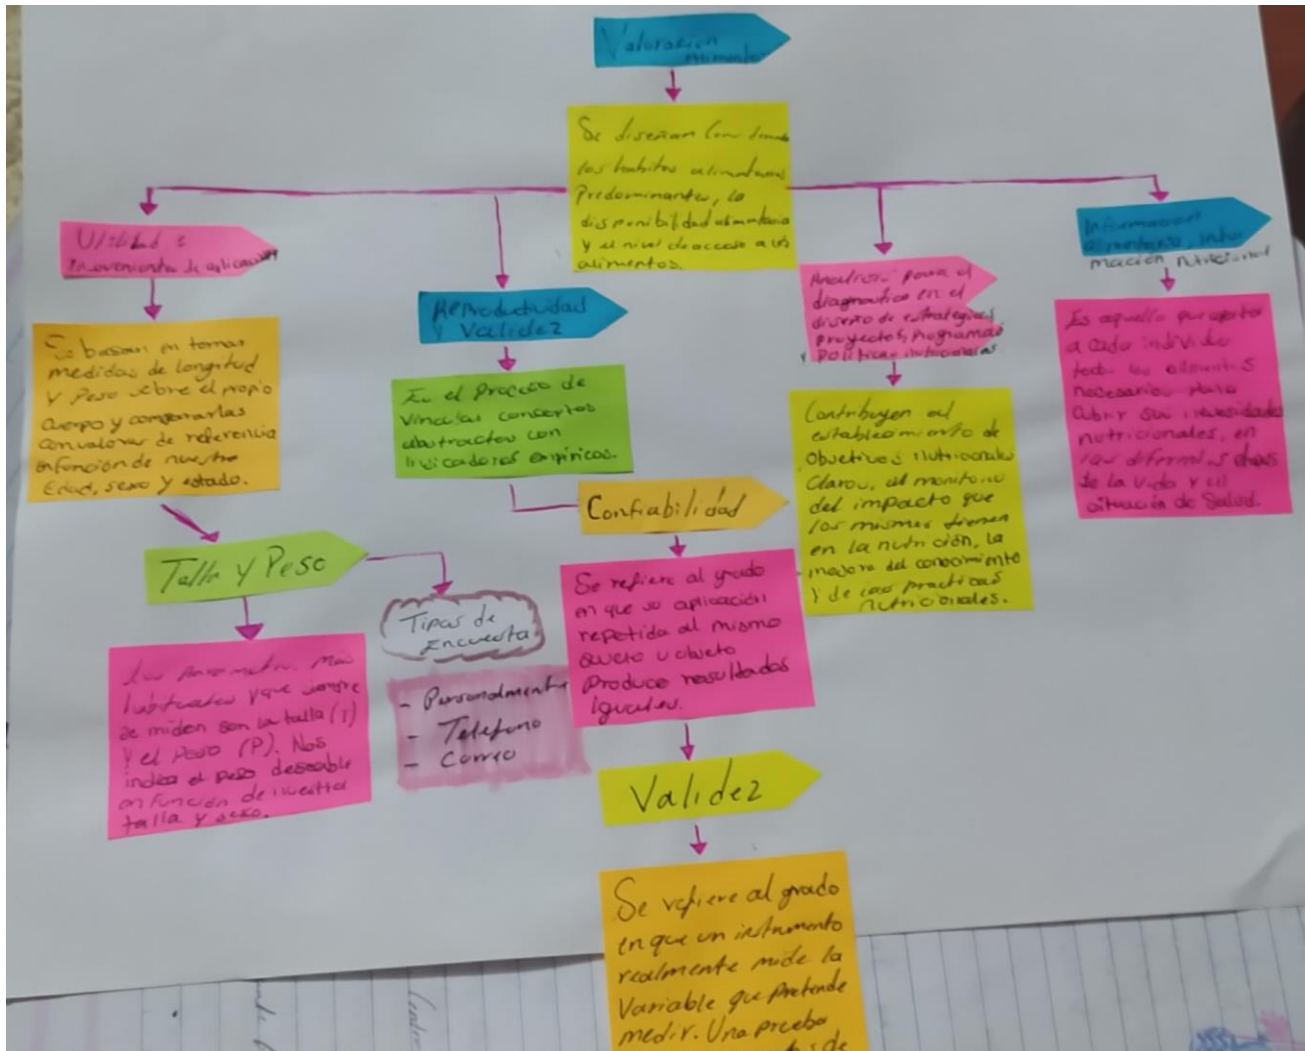 Valoración
Se diseñan
los habitos
Predominantes, la
disponibilidad alimentaria
y el nivel de acceso a los
alimentos.
Utilidad e
de aplicación
Se basan en tomar
medidas de longitud
y Peso sobre el propio
cuerpo y compararlas
con valores de referencia
en función de nuestra
Edad, sexo y estado.
Talla y Peso
habituales y que siempre
se miden son la talla (T)
y el Peso (P). Nos
indica el peso deseable
en función de nuestra
talla y sexo.
Tipos de
Encuesta
- Personalmente
- Telefono
- Correo
Reproductividad
y Validez
Es el Proceso de
vincular conceptos
abstractos con
indicadores empiricos.
Confiabilidad
Se refiere al grado
en que su aplicación
repetida al mismo
objeto
Produce resultados
iguales.
Validez
Se refiere al grado
en que un instrumento
realmente mide la
Variable que pretende
medir. Una prueba
de
para el
diagnostico en el
diseño de estrategias,
proyectos, programas
y Politicas nutricionales
Contribuyen al
establecimiento de
Objetivos nutricionales
Claros, al monitoreo
del impacto que
los mismos tienen
en la nutrición, la
mejora del conocimiento
y de las practicas
nutricionales.
Información
alimentaria, infor
mación nutricional
Es aquella que aporta
a cada individuo
todos los alimentos
necesarios para
cubrir sus necesidades
nutricionales, en
las diferentes etapas
de la vida y en
situación de Salud.